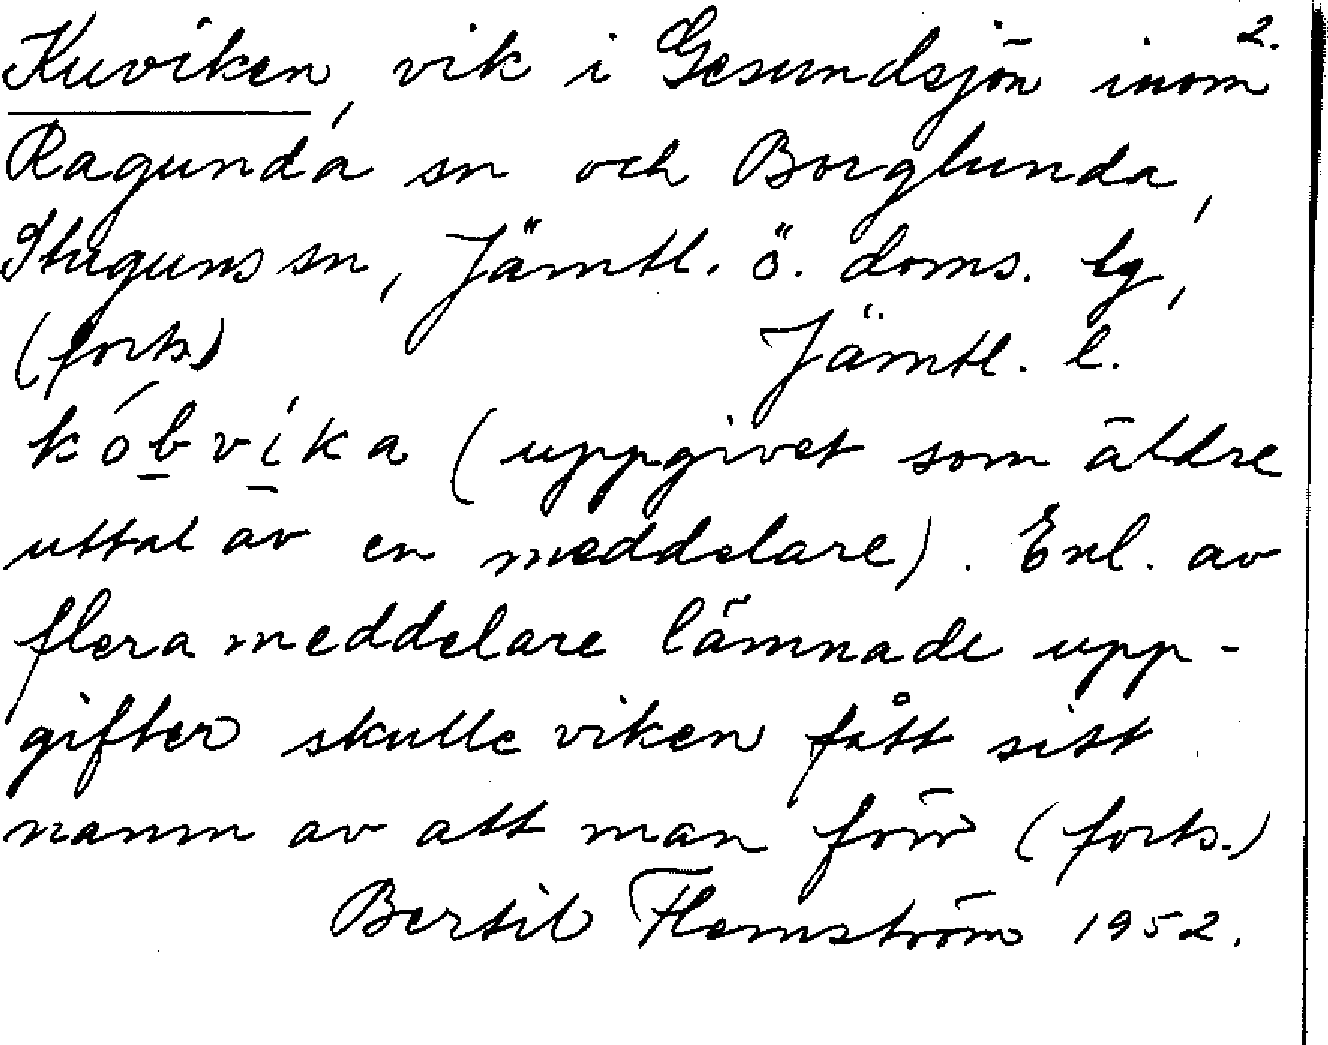 2.
Kuviken, vik i Gesundsjön inom
Ragunda sn och Borglunda,
Stuguns sn, Jämtl. ö. doms. lg,
(forts.) Jämtl. l.
kóbvíka (uppgivet som äldre
uttal av en meddelare). Enl. av
flera meddelare lämnade upp-
gifter skulle viken fått sitt
namn av att man förr (forts.)
Bertil Flemström 1952.